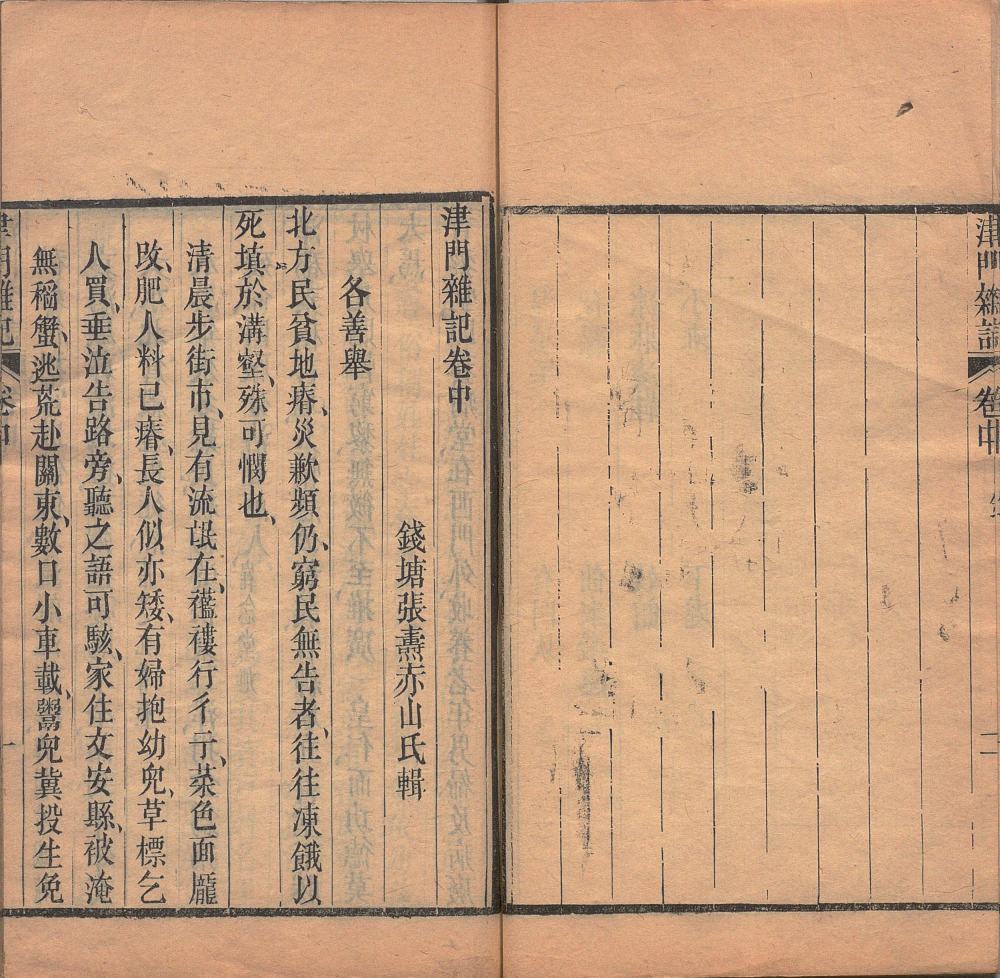 津門雜記 卷中 二
津門雜記卷中
錢塘張燾赤山氏輯
各善舉
北方民貧地瘠、災歉頻仍、窮民無告者、往往凍餓以
死填於溝壑、殊可憫也、
清晨步街市、見有流氓在、襤褸行彳亍、菜色面龐
攺、肥人料已瘠、長人似亦矮、有婦抱幼兒、草標乞
人買、垂泣告路旁、聽之語可駭、家住文安縣、被淹
無稻蟹、逃荒赴關東、數口小車載、鬻兒冀投生免
津門雜記 卷中 一